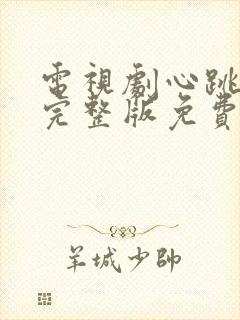 電視劇心跳
完整版免費
羊城少帥